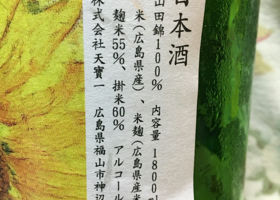 日本酒
山田錦100% 内容量1800ml
米(広島県産)、米麹(広島県産米
麹米55%、掛米60% アルコール
株式会社天寶一 広島県福山市神辺